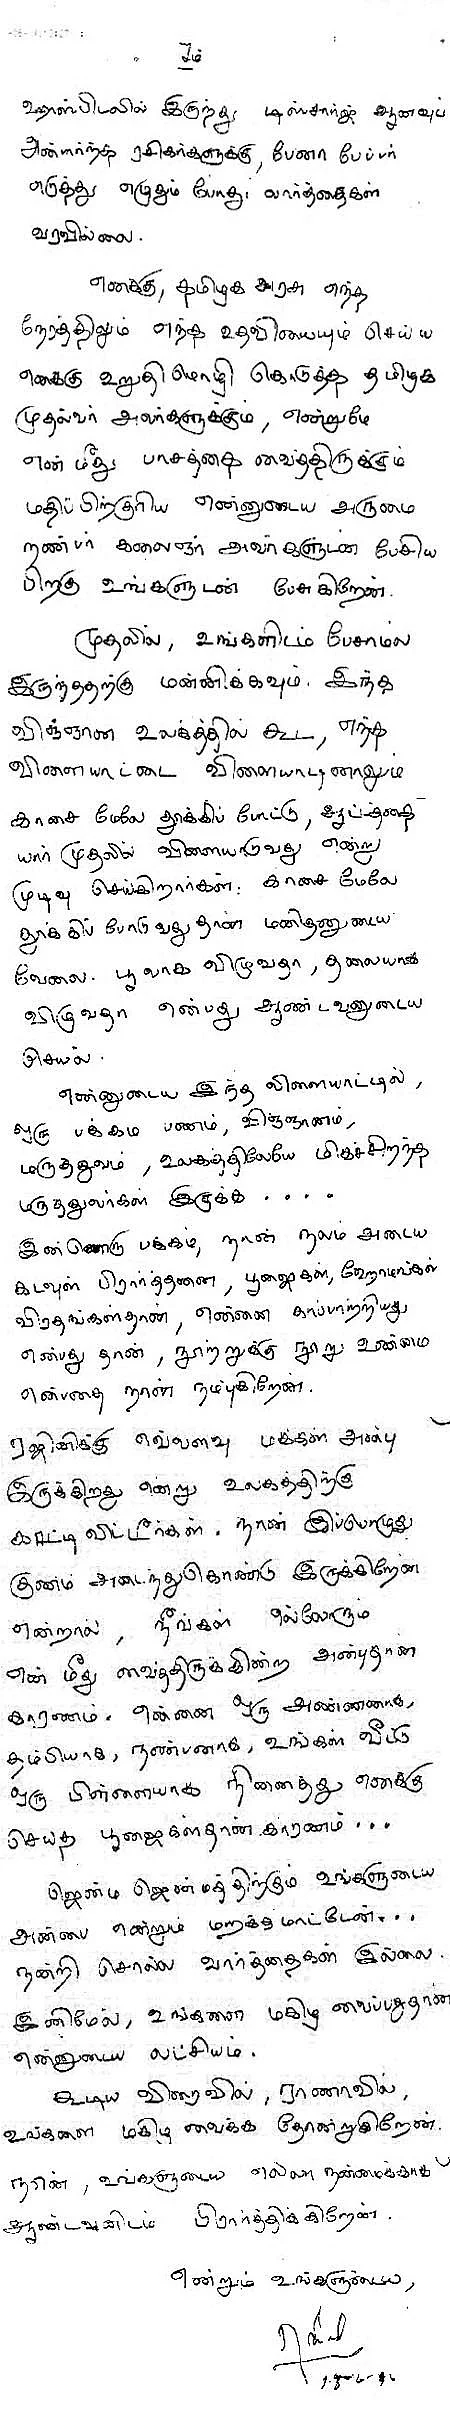 ஓம்
ஹாஸ்பிடலில் இருந்து டிஸ்சார்ஜ் ஆனவுடன்
அன்பார்ந்த ரசிகர்களுக்கு, பேனா பேப்பர்
எடுத்து எழுதும் போது, வார்த்தைகள்
வரவில்லை.
எனக்கு, தமிழக அரசு எந்த
நேரத்திலும் எந்த உதவியையும் செய்ய
எனக்கு உறுதிமொழி கொடுத்த தமிழக
முதல்வர் அவர்களுக்கும், என்றுமே
என் மீது பாசத்தை வைத்திருக்கும்
மதிப்பிற்குரிய என்னுடைய அருமை
நண்பர் கலைஞர் அவர்களுடன் பேசிய
பிறகு உங்களுடன் பேசுகிறேன்.
முதலில், உங்களிடம் பேசாமல்
இருந்ததற்கு மன்னிக்கவும். இந்த
விஞ்ஞான உலகத்தில் கூட, எந்த
விளையாட்டை விளையாடினாலும்
காசை மேலே தூக்கிப் போட்டு, ஆட்டத்தை
யார் முதலில் விளையாடுவது என்று
முடிவு செய்கிறார்கள். காசை மேலே
தூக்கிப் போடுவதுதான் மனிதனுடைய
வேலை. பூவாக விழுவதா, தலையாக
விழுவதா என்பது ஆண்டவனுடைய
செயல்.
என்னுடைய இந்த விளையாட்டில்,
ஒரு பக்கம் பணம், விஞ்ஞானம்,
மருத்துவம், உலகத்திலேயே மிகச்சிறந்த
மருத்துவர்கள் இருக்க ....
இன்னொரு பக்கம், நான் நலம் அடைய
கடவுள் பிரார்த்தனை, பூஜைகள், ஹோமங்கள்
விரதங்கள்தான், என்னை காப்பாற்றியது
என்பது தான், நூற்றுக்கு நூறு உண்மை
என்பதை நான் நம்புகிறேன்.
ரஜினிக்கு எவ்வளவு மக்கள் அன்பு
இருக்கிறது என்று உலகத்திற்கு
காட்டி விட்டீர்கள். நான் இப்பொழுது
குணம் அடைந்துகொண்டு இருக்கிறேன்
என்றால், நீங்கள் எல்லோரும்
என் மீது வைத்திருக்கின்ற அன்புதான்
காரணம். என்னை ஒரு அண்ணனாக,
தம்பியாக, நண்பனாக, உங்கள் வீட்டு
ஒரு பிள்ளையாக நினைத்து எனக்கு
செய்த பூஜைகள்தான் காரணம் ...
ஜென்ம ஜென்மத்திற்கும் உங்களுடைய
அன்பை என்றும் மறக்கமாட்டேன்...
நன்றி சொல்ல வார்த்தைகள் இல்லை.
இனிமேல், உங்களை மகிழ வைப்பதுதான்
என்னுடைய லட்சியம்.
கூடிய விரைவில், ராணாவில்,
உங்களை மகிழ வைக்க தோன்றுகிறேன்.
நான், உங்களுடைய எல்லா நன்மைக்காகவும்
ஆண்டவனிடம் பிரார்த்திக்கிறேன்.
என்றும் உங்களுடைய,